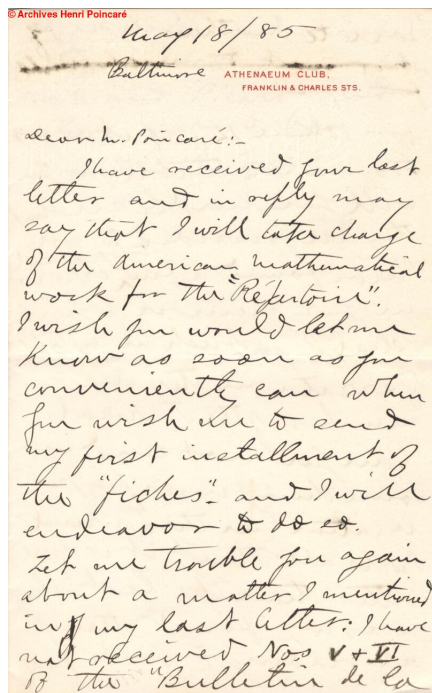 © Archives Henri Poincaré
May 18/85
Baltimore ATHENAEUM CLUB,
FRANKLIN & CHARLES STS.
Dear Mr. Poincaré:-
I have received your last
letter and in reply may
say that I will take charge
of the American mathematical
work for the "Répertoire".
I wish you would let me
know as soon as you
conveniently can when
you wish me to send
my first installment of
the "fiches" - and I will
endeavor to do so.
Let me trouble you again
about a matter I mentioned
in my last letter: I have
not received Nos V + VI
of the "Bulletin de la